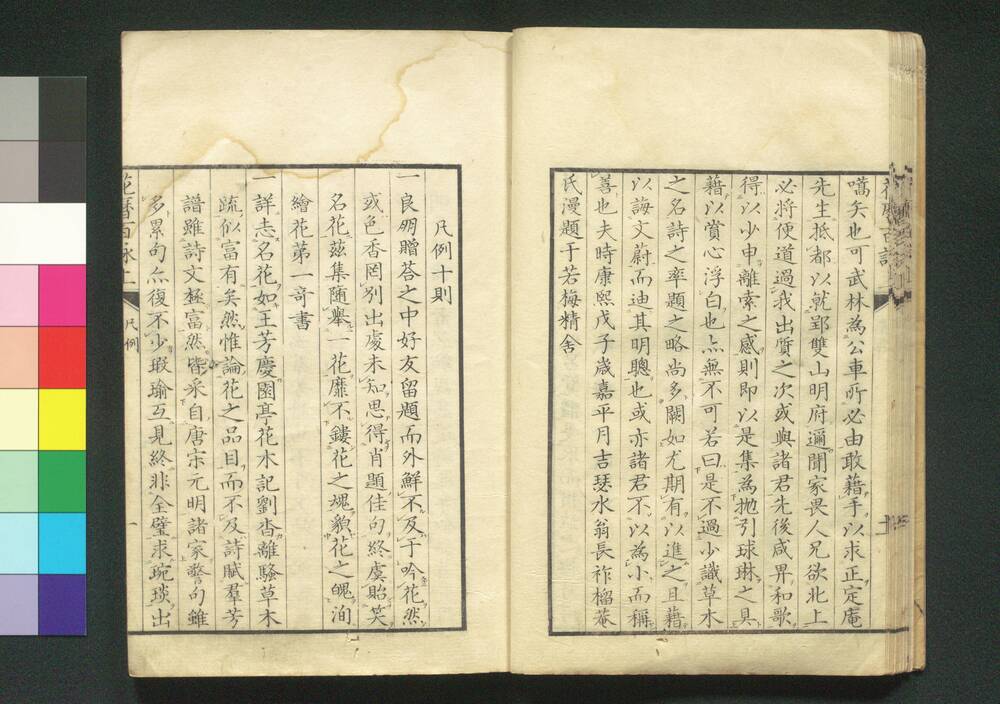 嚆矢也可武林為公車所必由敢藉手以求正定庵
先生抵都以就郢雙山明府邇聞家畏人兄欲北上
必將便道過我出質之次或與諸君先後咸畀和歌
得以少申離索之感則即以是集為抛引球琳之具
藉以賞心浮白也亦無不可若曰是不過少識草木
之名詩之率題之略尚多闕如尤期有以進之且藉
以誨文蔚而迪其明聰也或亦諸君不以為小而稱
善也夫時康熙戊子歲嘉平月吉瑟水翁長祚榴菴
氏漫題于若梅精舍
凡例十則
一良朋贈荅之中好友留題而外鮮不及于吟花然
或色香罔別出處未知思得肖題佳句終虞貽笑
名花茲集隨舉一花靡不鏤花之魂貌花之魄洵
繪花苐一奇書
一詳志名花如王芳慶園亭花木記劉杳離騷草木
疏似富有矣然惟論花之品目而不及詩賦羣芳
譜雖詩文極富然皆采自唐宗元明諸家警句雖
多累句亦復不少瑕瑜互見終非全璧求琬琰出
花曆百咏
凡例
一